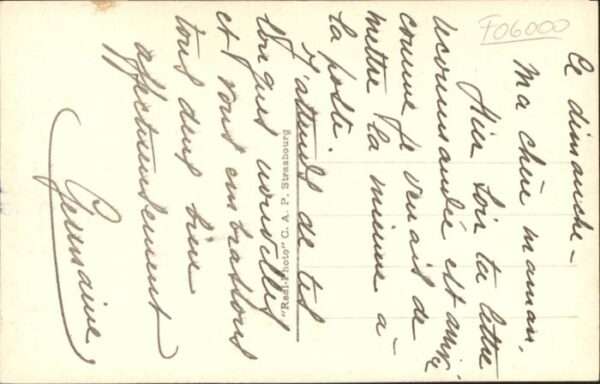 Ce dimanche -
Ma chère maman,
Hier soir ta lettre
recommandée est arrivée
comme je venais de
mettre la mienne à
la poste.
J'attends de tes
longues nouvelles
et vous embrassons
tous deux bien
affectueusement
Germaine
"Real-Photo" C. A. P. Strasbourg
F06000